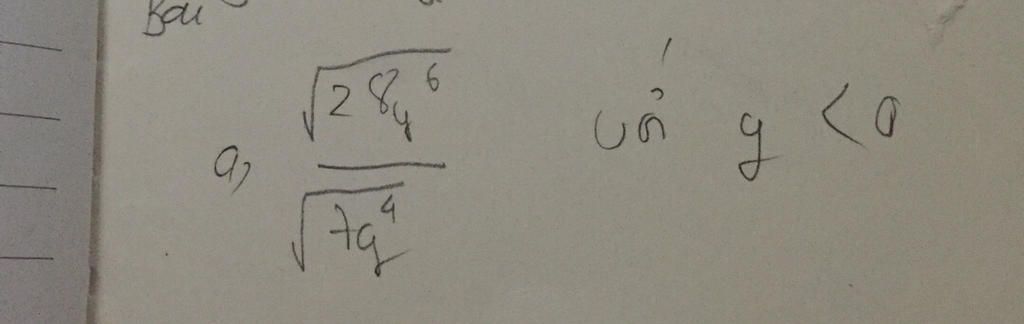 Bài
a, √28y⁶ / √7y⁴ với y < 0